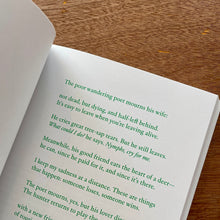 The poor wandering poet mourns his wife:
not dead, but dying, and half-left behind.
It's easy to leave when you're leaving alive.
He cries great tree-sap tears. But he still leaves.
What could I do? he says. Nymphs, cry for me.
Meanwhile, his good friend eats the heart of a deer—
he can, since he paid for it, and since it's there.
I keep my sadness at a distance. These are things
that happen: someone loses, someone wins.
The poet mourns, yes, but his lover dies.
The hunter returns to play the
with a new
of roses